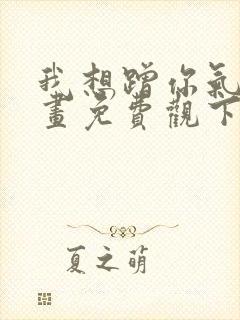 我想蹭你氣
畫免費觀下
夏之萌